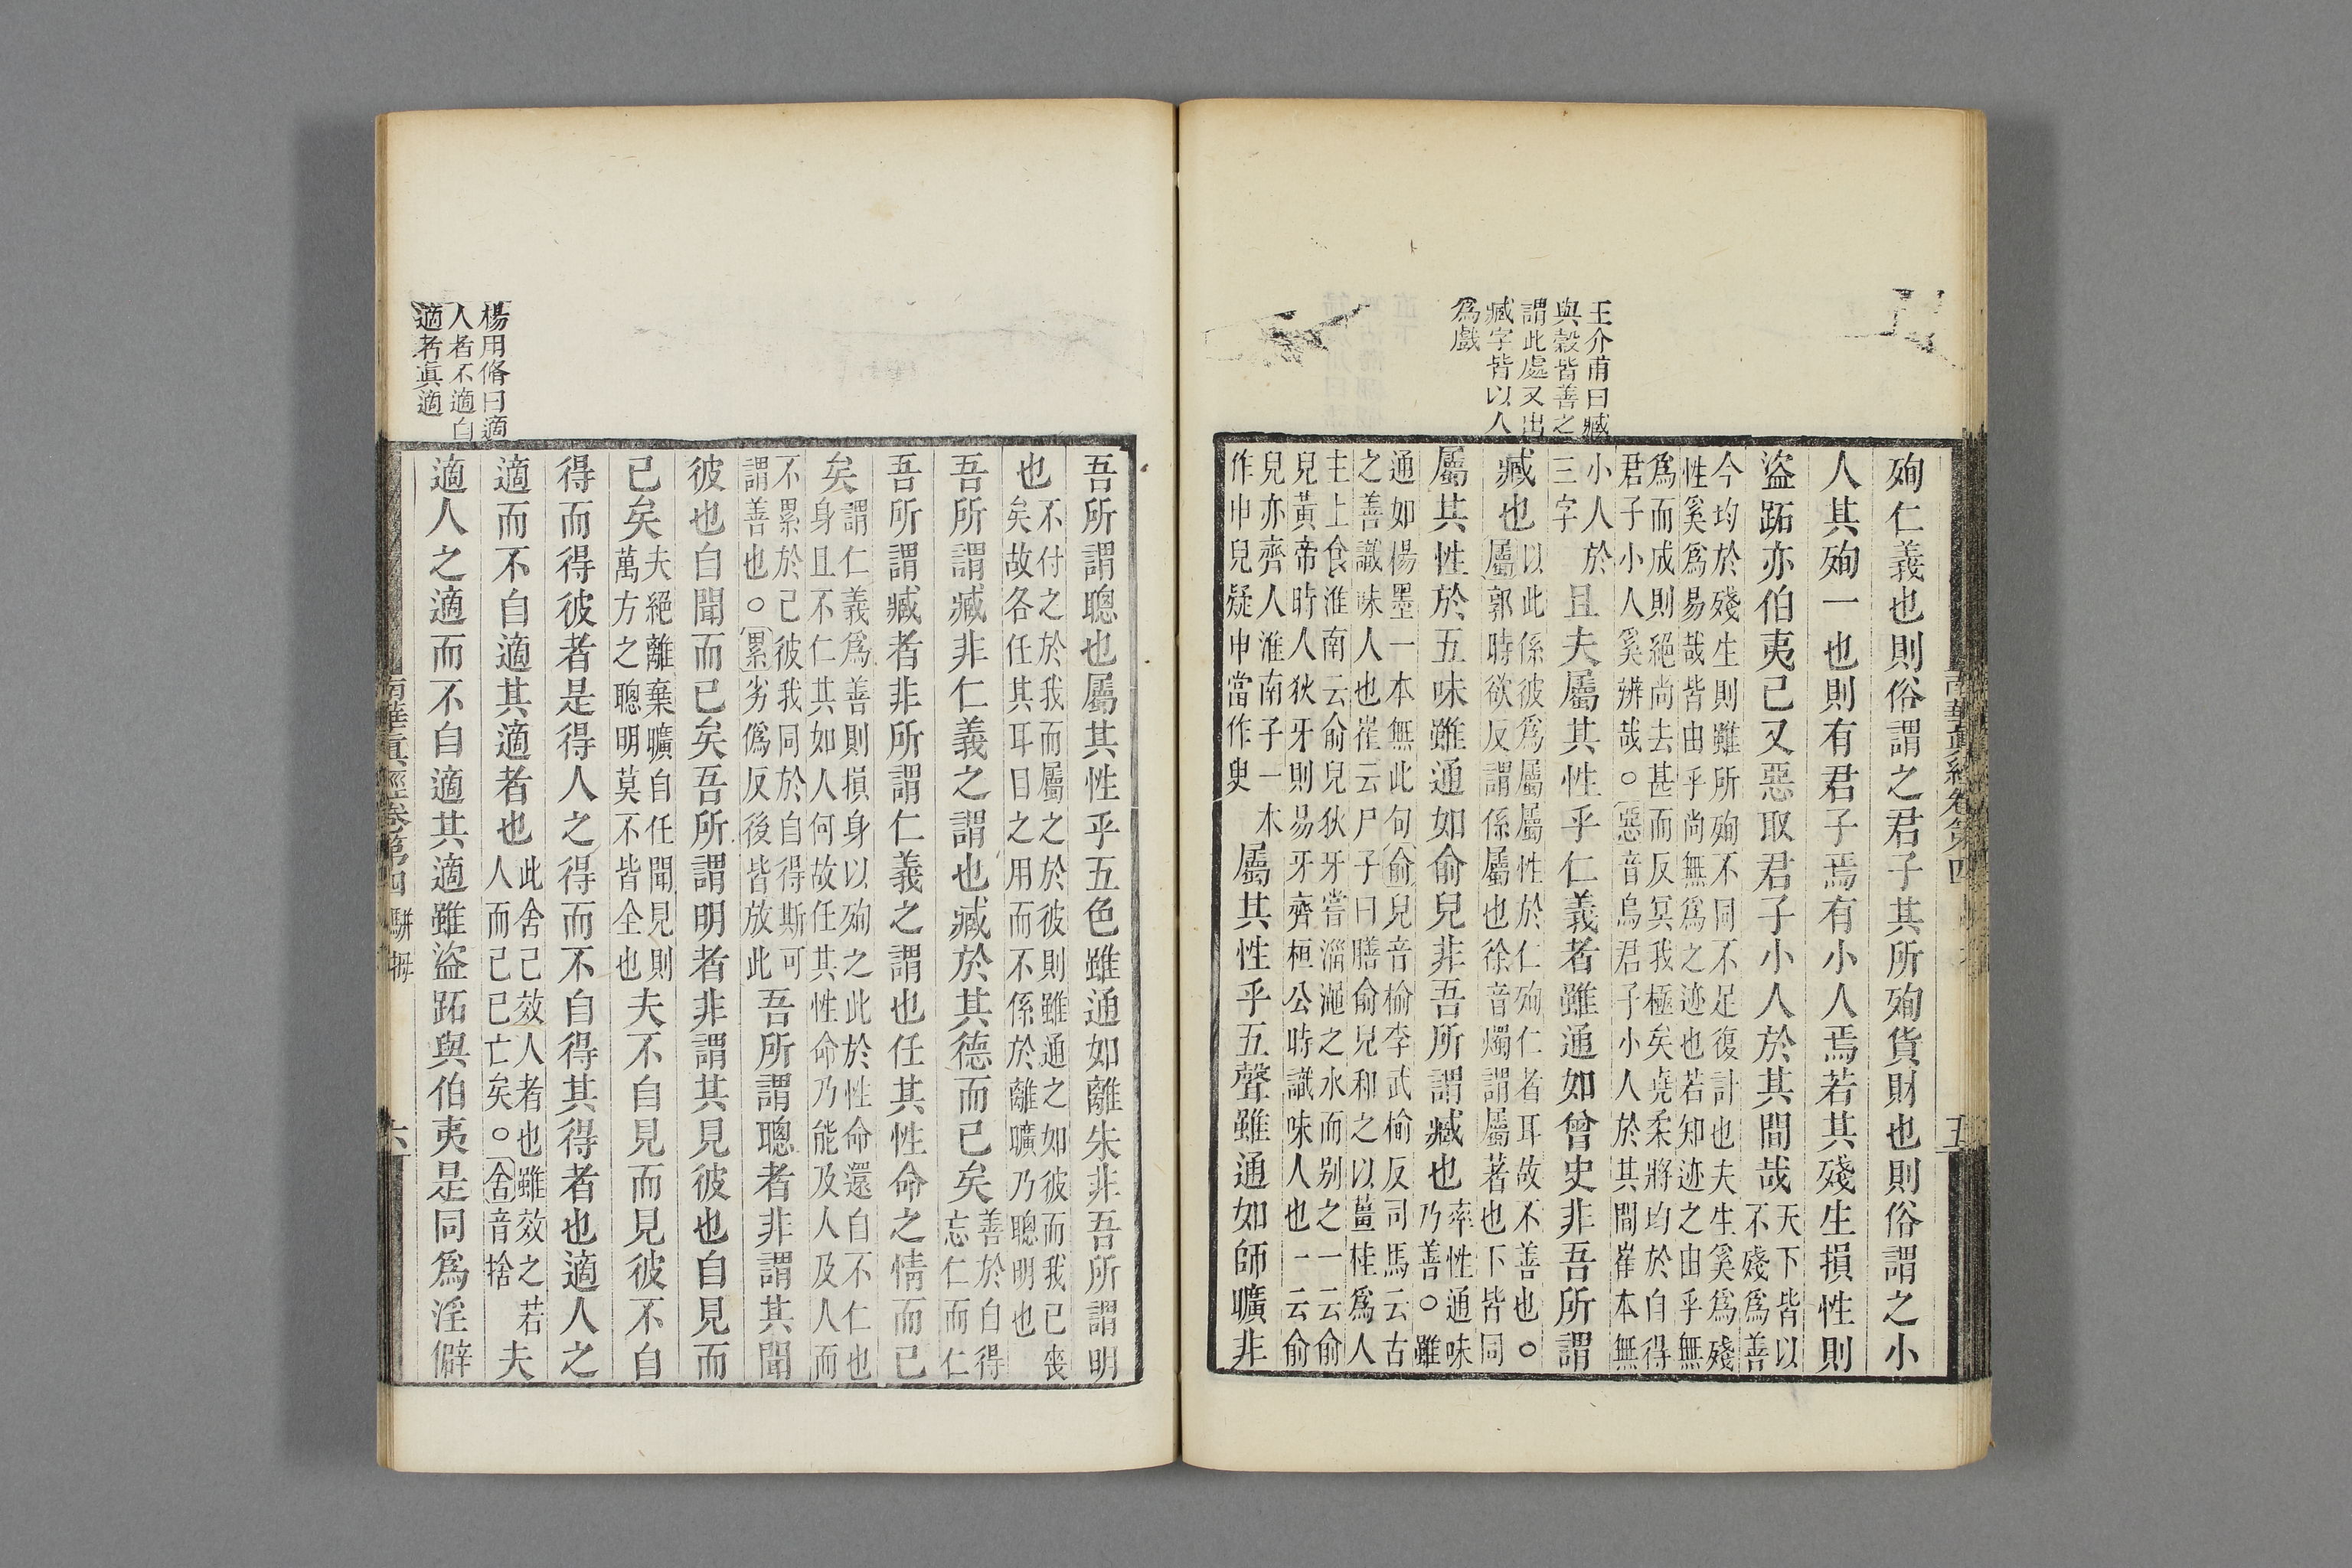 王介甫曰臧
與穀皆善之
謂此處又出
臧字皆以人
爲戲
殉仁義也則俗謂之君子其所殉貨財也則俗謂之小
人其殉一也則有君子焉有小人焉若其殘生損性則
盜跖亦伯夷已又惡取君子小人於其間哉天下皆以
不殘爲善
今均於殘生則雖所殉不同不足復計也夫生奚爲殘
性奚爲易哉皆由乎尚無爲之迹也若知迹之由乎無
爲而成則絕尚去甚而反冥我極矣堯桀將均於自得
君子小人奚辨哉○惡音烏君子小人於其間崔本無
小人於
三字
且夫屬其性乎仁義者雖通如曾史非吾所謂
臧也以此係彼爲屬屬性於仁殉仁者耳故不善也○
屬郭時欲反謂係屬也徐音燭謂屬著也下皆同
屬其性於五味雖通如俞兒非吾所謂臧也率性通味
乃善○雖
通如楊墨一本無此句俞兒音榆李武榆反司馬云古
之善識味人也崔云尸子曰膳俞兒和之以薑桂爲人
主上食淮南云俞兒狄牙嘗淄澠之水而别之一云俞
兒黃帝時人狄牙則易牙齊桓公時識味人也一云俞
兒亦齊人淮南子一本
作申兒疑申當作臾
屬其性乎五聲雖通如師曠非
南華眞經卷第四
五
楊用脩曰適
人者不適自
適者眞適
吾所謂聰也屬其性乎五色雖通如離朱非吾所謂明
也不付之於我而屬之於彼則雖通之如彼而我已喪
矣故各任其耳目之用而不係於離曠乃聰明也
吾所謂臧非仁義之謂也臧於其德而已矣善於自得
忘仁而仁
吾所謂臧者非所謂仁義之謂也任其性命之情而已
矣謂仁義爲善則損身以殉之此於性命還自不仁也
身且不仁其如人何故任其性命乃能及人及人而
不累於己彼我同於自得斯可
謂善也○累劣僞反後皆放此
吾所謂聰者非謂其聞
彼也自聞而已矣吾所謂明者非謂其見彼也自見而
已矣夫絕離棄曠自任聞見則
萬方之聰明莫不皆全也
夫不自見而見彼不自
得而得彼者是得人之得而不自得其得者也適人之
適而不自適其適者也此舍己效人者也雖效之若
人而己已亡矣○舍音捨
夫
適人之適而不自適其適雖盜跖與伯夷是同爲淫僻
南華眞經卷第四 駢拇
六